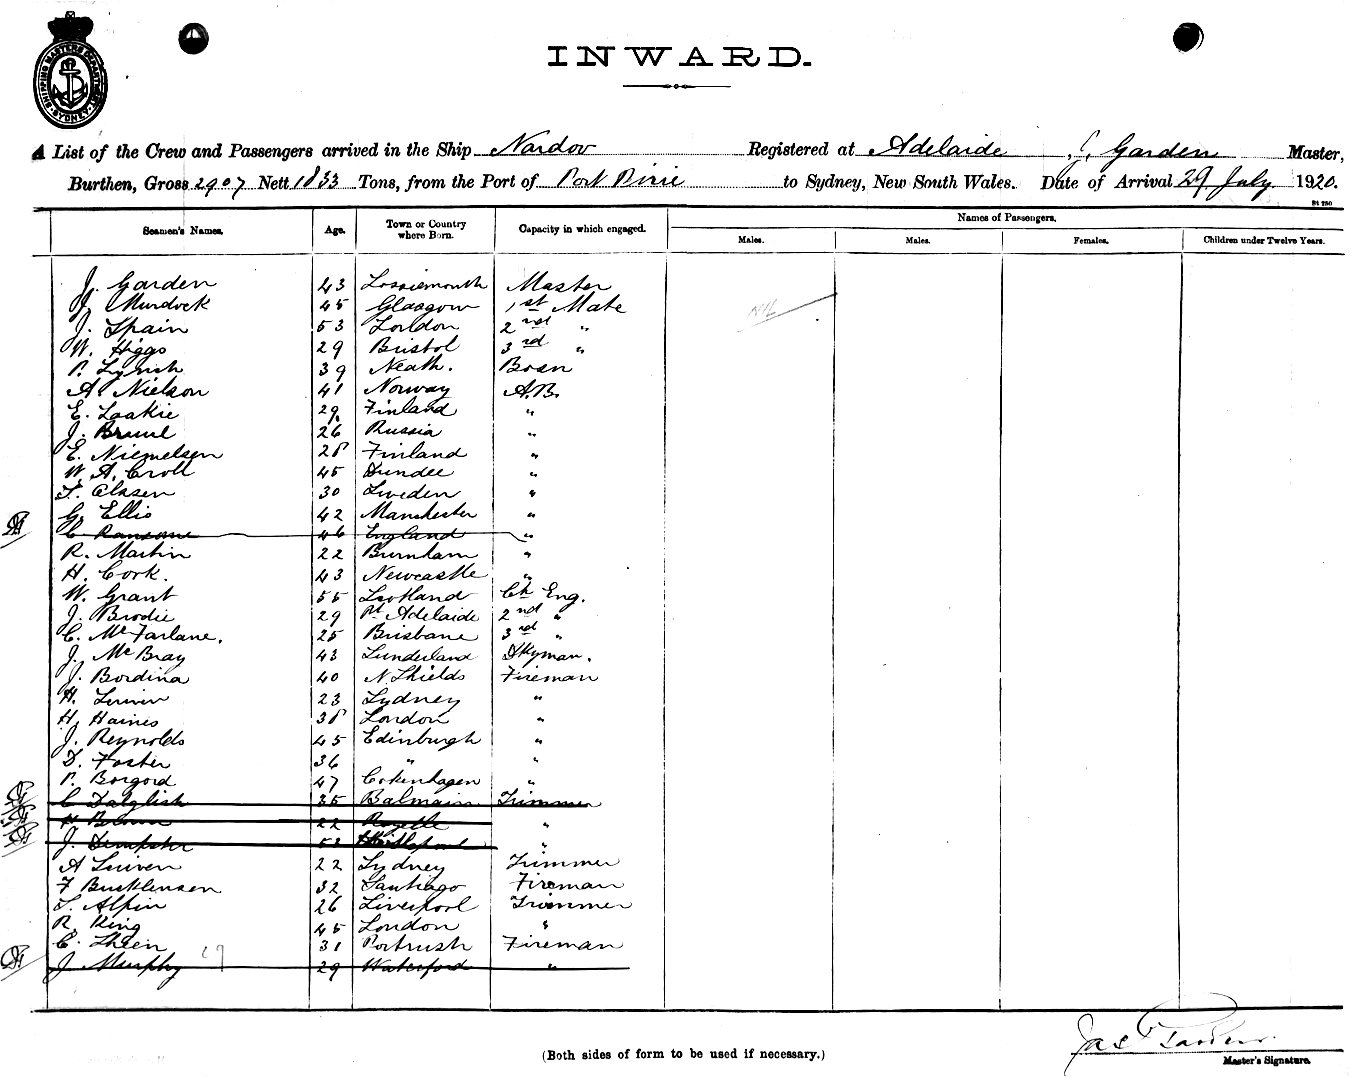 SHIPPING MASTERS DEPARTMENT SYDNEY
INWARD.
A List of the Crew and Passengers arrived in the Ship Nardoo Registered at Adelaide J. Garden Master,
Burthen, Gross 2907 Nett 1833 Tons, from the Port of Port Pirie to Sydney, New South Wales. Date of Arrival 29 July 1920.
Seamen's Names. Age. Town or Country where Born. Capacity in which engaged. Names of Passengers.
Males. Males. Females. Children under Twelve Years.
J. Garden 43 Lossiemouth Master
J. Murdock 45 Glasgow 1st Mate
J. Spain 53 London 2nd "
W. Higgs 29 Bristol 3rd "
P. Lynch 39 Neath. Bosn
A. Nielson 41 Norway A.B.
E. Laakie 29 Finland "
J. 26 Russia "
E. Niemelsen 28 Finland "
W. A. Croll 45 Dundee "
F. Clasen 30 Sweden "
G. Ellis 42 Manchester "
C. Ransome 46 England "
R. Martin 22 Burnham "
H. Cork. 43 Newcastle "
W. Grant 55 Scotland Ch Eng.
J. Brodie 29 Pt Adelaide 2nd "
C. McFarlane. 25 Brisbane 3rd "
J. McBray 43 Sunderland Dkyman.
J. Bordina 40 N. Shields Fireman
H. 23 Sydney "
H. Haines 38 London "
J. Reynolds 45 Edinburgh "
D. Foster 36 " "
P. Borgord 47 Copenhagen "
C Dalglish 35 Balmain Trimmer
H Brown 22 Rozelle "
J. Dempster 53 Hartlepool "
A 22 Sydney Trimmer
F 32 Santiago Fireman
S. Alpin 26 Liverpool Trimmer
R. King 45 London "
C. Sheen 31 Portrush Fireman
J Murphy 29 Waterford "
Jas Garden
Master's Signature.
(Both sides of form to be used if necessary.)